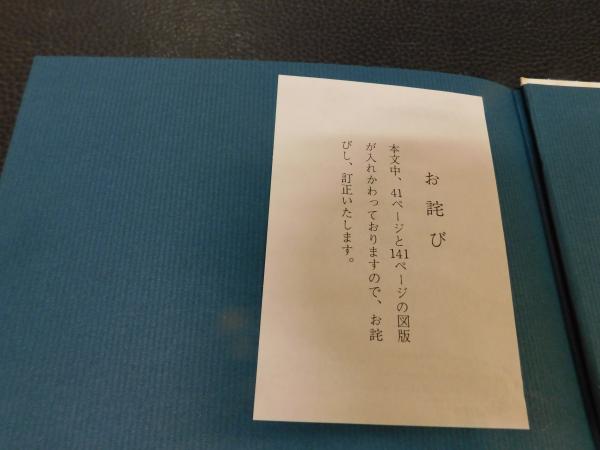 お詫び
本文中、41ページと141ページの図版
が入れかわっておりますので、お詫
びし、訂正いたします。